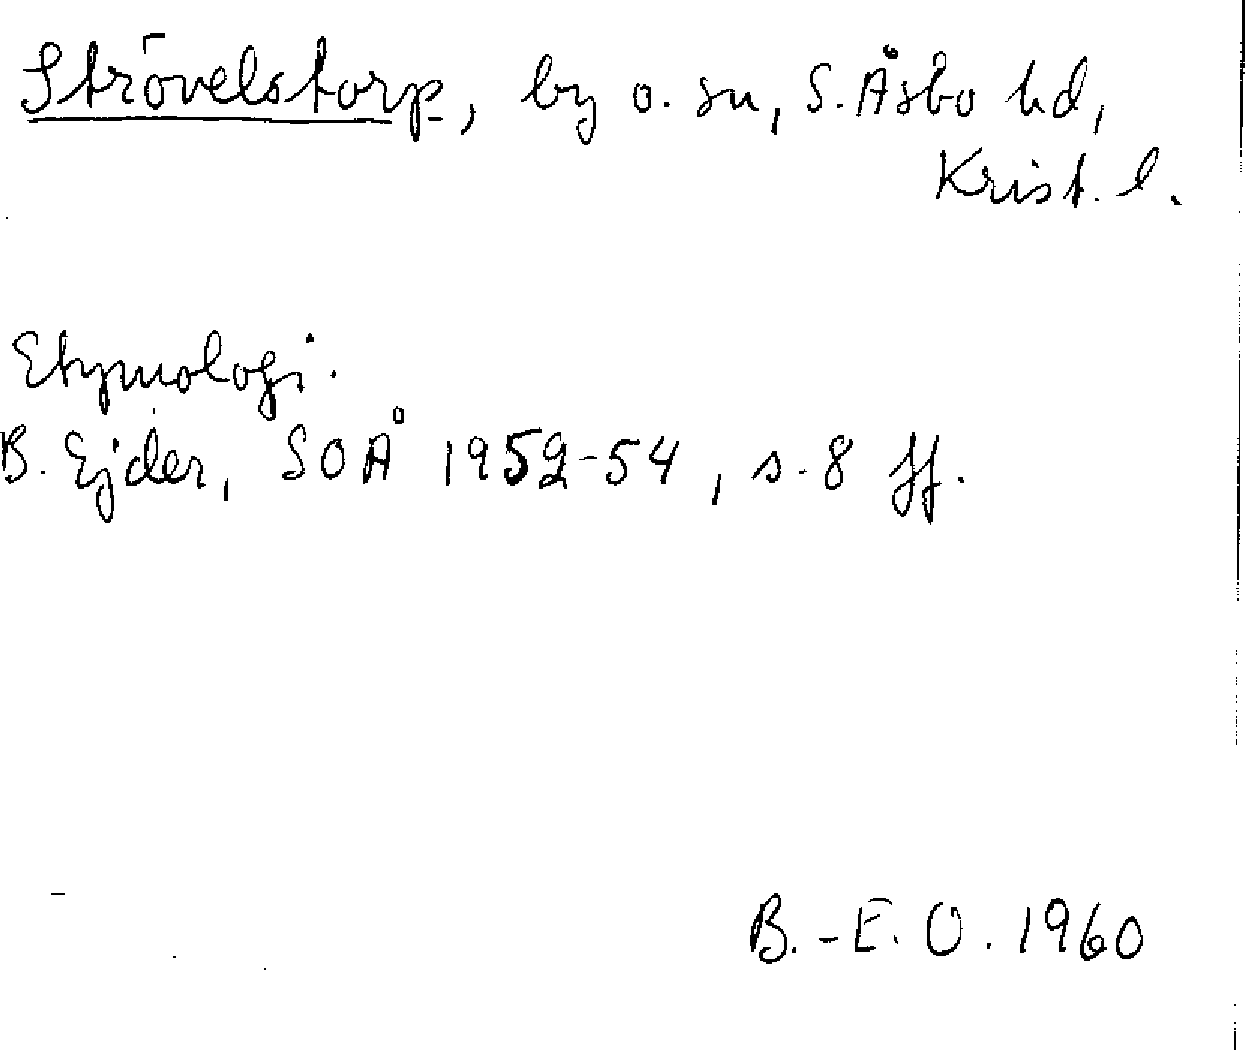 Strövelstorp, by o. sn, S. Åsbo hd,
Krist. l.
Etymologi.
B. Ejder, SOÅ 1952-54, s. 8 ff.
B.-E. O. 1960